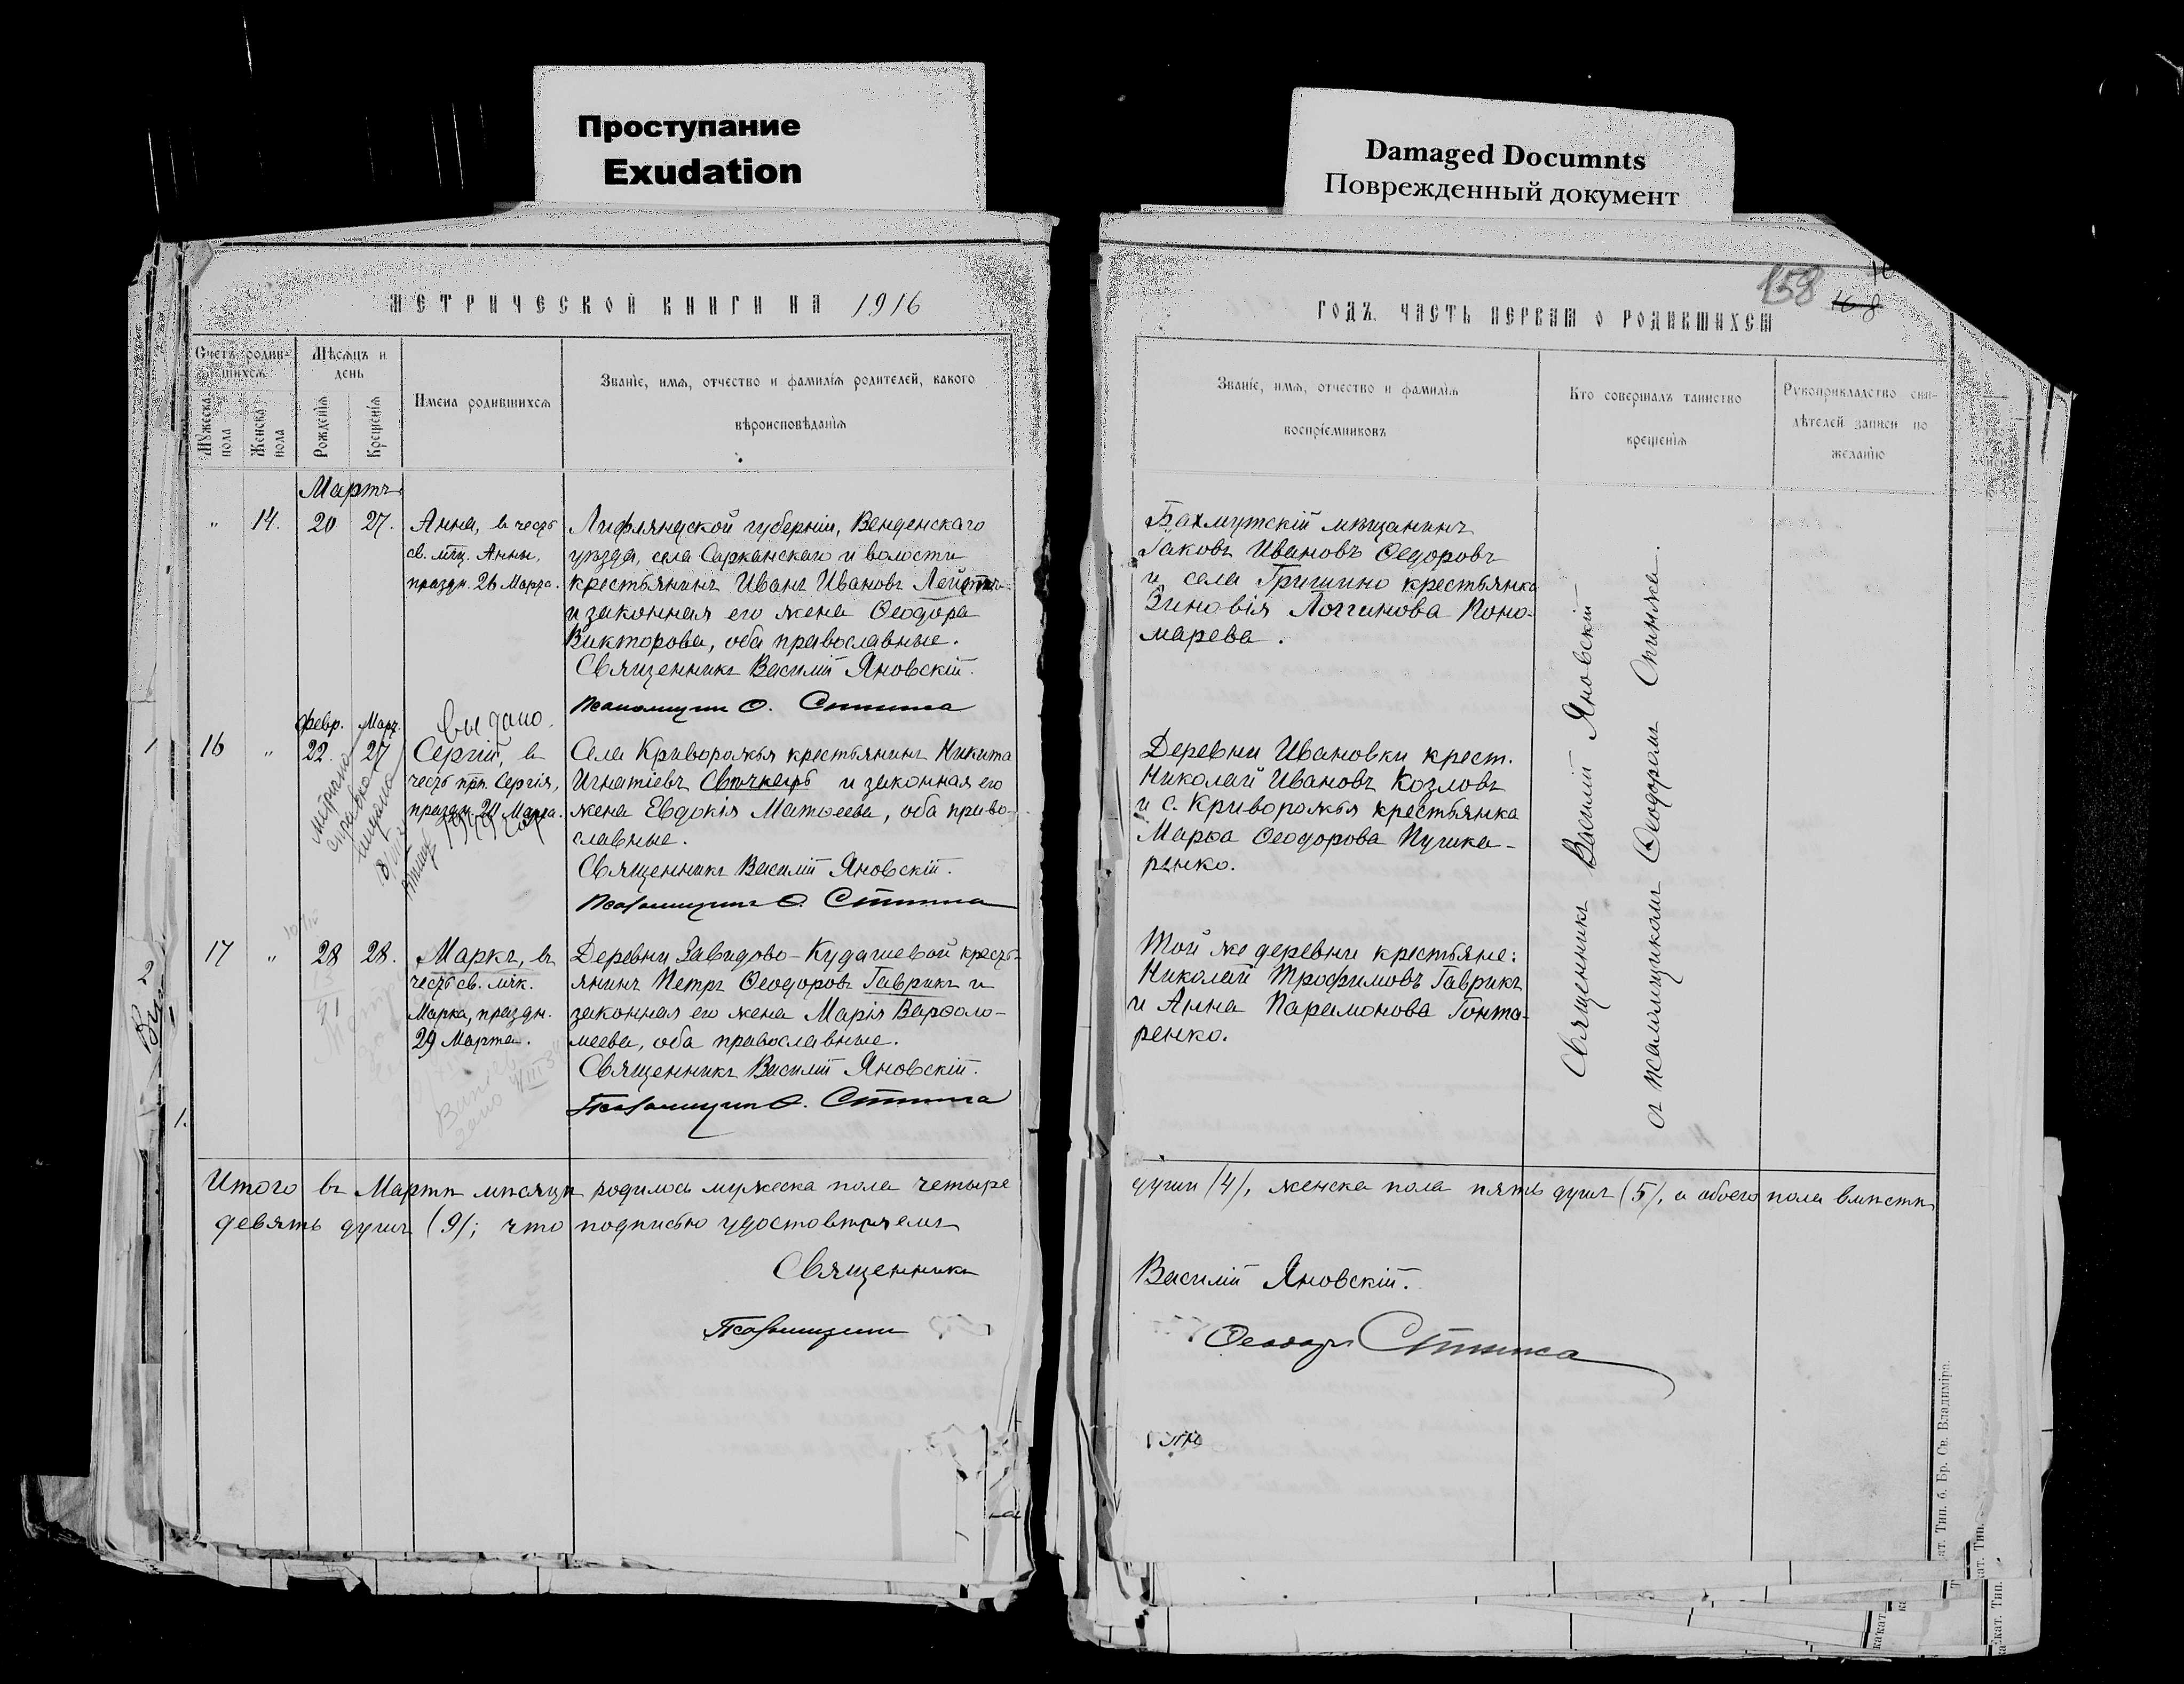 Проступание
Exudation
Damaged Documnts
Поврежденный документ
МЕТРИЧЕСКОЙ КНИГИ НА 1916
ГОДЪ. ЧАСТЬ ПЕРВАЯ О РОДИВШИХСЯ
158
168
Счетъ родив-
шихся
Мѣсяцъ и
день
Мужеска
пола
Женска
пола
Рожденія
Крещенія
Имена родившихся
Званіе, имя, отчество и фамилія родителей, какого
вѣроисповѣданія
Званіе, имя, отчество и фамилія
воспріемниковъ
Кто совершалъ таинство
крещенія
Рукоприкладство сви-
дѣтелей записи по
желанію
Мартъ
" 14. 20 27.
Анна, въ честь
св. мц. Анны,
праздн. 26 Марта.
Лифляндской губерніи, Венденскаго
уѣзда, села Сарканскаго и волости
крестьянинъ Иванъ Ивановъ
и законная его жена Ѳеодора
Викторова, оба православные.
Священникъ Василій Яновскій.
Псаломщикъ Ѳ.
Бахмутскій мѣщанинъ
Іаковъ Ивановъ Ѳедоровъ
и села Гришино крестьянка
Зиновія Логгинова Поно-
марева.
Февр. Март.
16 " 22. 27
Выдано.
Сергій, въ
честь прп. Сергія,
праздн. 20 Марта.
Села Криворожья крестьянинъ Никита
Игнатіевъ и законная его
жена Евдокія Матѳеева, оба право-
славные.
Священникъ Василій Яновскій.
Псаломщикъ Ѳ.
Деревни Ивановки крест.
Николай Ивановъ Козловъ
и с. Криворожья крестьянка
Марѳа Ѳеодорова Пушка-
ренко.
17 " 28 28.
Маркъ, въ
честь св. мчк.
Марка, праздн.
29 Марта.
Деревни Завидово-Кудашевой кресть-
янинъ Петръ Ѳеодоровъ Гаврикъ и
законная его жена Марія Варѳоло-
меева, оба православные.
Священникъ Василій Яновскій.
Псаломщикъ Ѳ.
Той же деревни крестьяне:
Николай Трофимовъ Гаврикъ
и Анна Парамонова Гонта-
ренко.
Священникъ Василій Яновскій
съ псаломщикомъ Ѳеодоромъ
Итого въ Мартѣ мѣсяцѣ родилось мужеска пола четыре
души (4), женска пола пять душъ (5), а обоего пола вмѣстѣ
девять душъ (9); что подписью удостовѣряемъ
Священникъ
Василій Яновскій.
Псаломщикъ
Ѳеодоръ
ат. Тип. б. Бр. Св. Владиміра.